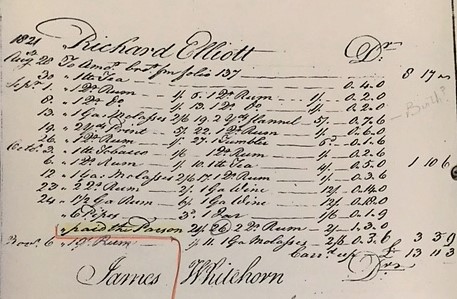 1821 Richard Elliott Dr
Augt 28 To Amot brot fm folio 137 8 17
30 " 1 lb Tea 0.4.0
Sept 1 " 1 Qt Rum 1/ 5. 1 Qt Rum 1/ 0.2.0
8 " 1 Qt Do 1/ 13. 1 Qt Do 1/ 0.2.0
13 " 1 Ga Molasses 2/6 19. 2 Yd Flannel 5/ 0.7.6
19 " Print 5/ 22. 1 Qt Rum 1/ 0.6.0
26 " 1 Qt Rum 1/ 27. 1 Tumbler 0.1.6
Octr 3 " 1 lb Tobacco 1 Qt Rum 0.2.0
6 " 1 Qt Rum 1/ 10. 1 lb Tea 0.5.0 1 10 6
12 " 1 Ga Molasses 2/6 17. 1 Qt Rum 0.3.6
23 " 2 Qt Rum 2/ 1 Ga Wine 0.14.0
24 " 1/2 Ga Rum 6/ 1 Ga Wine 0.18.0
" 6 Pipes 3d 1 Jar 1/6 0.1.9
" paid the Parson 21/ 26 2 Qt Rum 2/ 1.3.0
Novr 6 " 1 Qt Rum 1/ 11. 1 Ga Molasses 2/6 0.3.6 3 3 9
Carrd up £ 13 11 3
James Whitehorn Dr